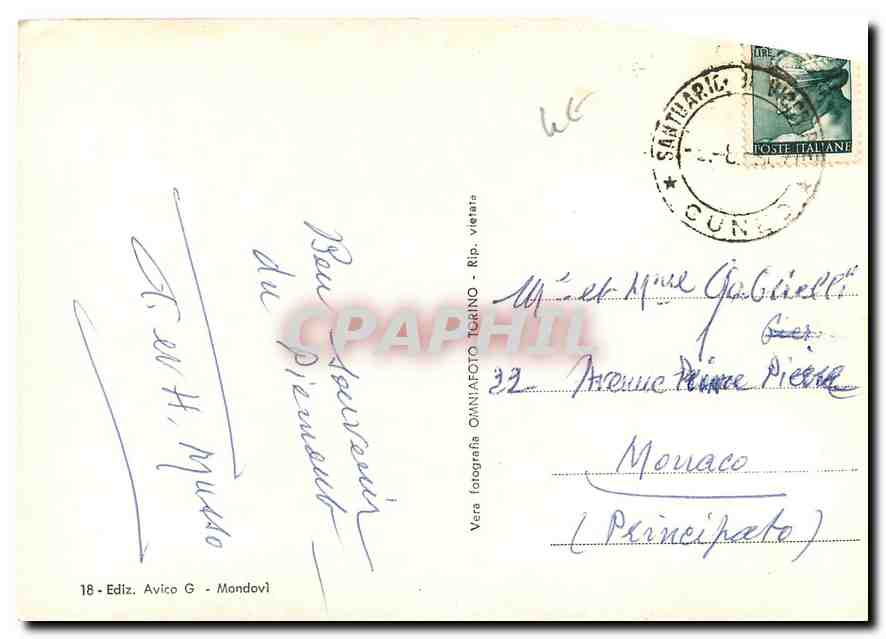 LIRE
POSTE ITALIANE
SANTUARIO DI
CUNEO
Bon souvenir
du Piemont
et H. Musso
Vera fotografia OMNIAFOTO TORINO - Rip. vietata
18 - Ediz. Avico G - Mondovì
CPAPHIL
Mr et Mme Gabirelli
Avenue Prince Pierre
Monaco
(Principato)